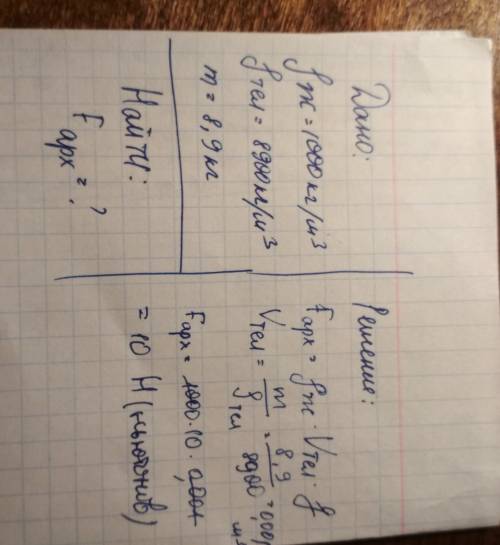 Дано:
ρж = 1000 кг/м³
ρтел = 8900 кг/м³
m = 8,9 кг
Найти:
Fарх = ?
Решение:
Fарх = ρж · Vтел · g
Vтел = m/ρтел = 8,9/8900 = 0,001
Fарх = 1000 · 10 · 0,001
= 10 Н (ньютонов)